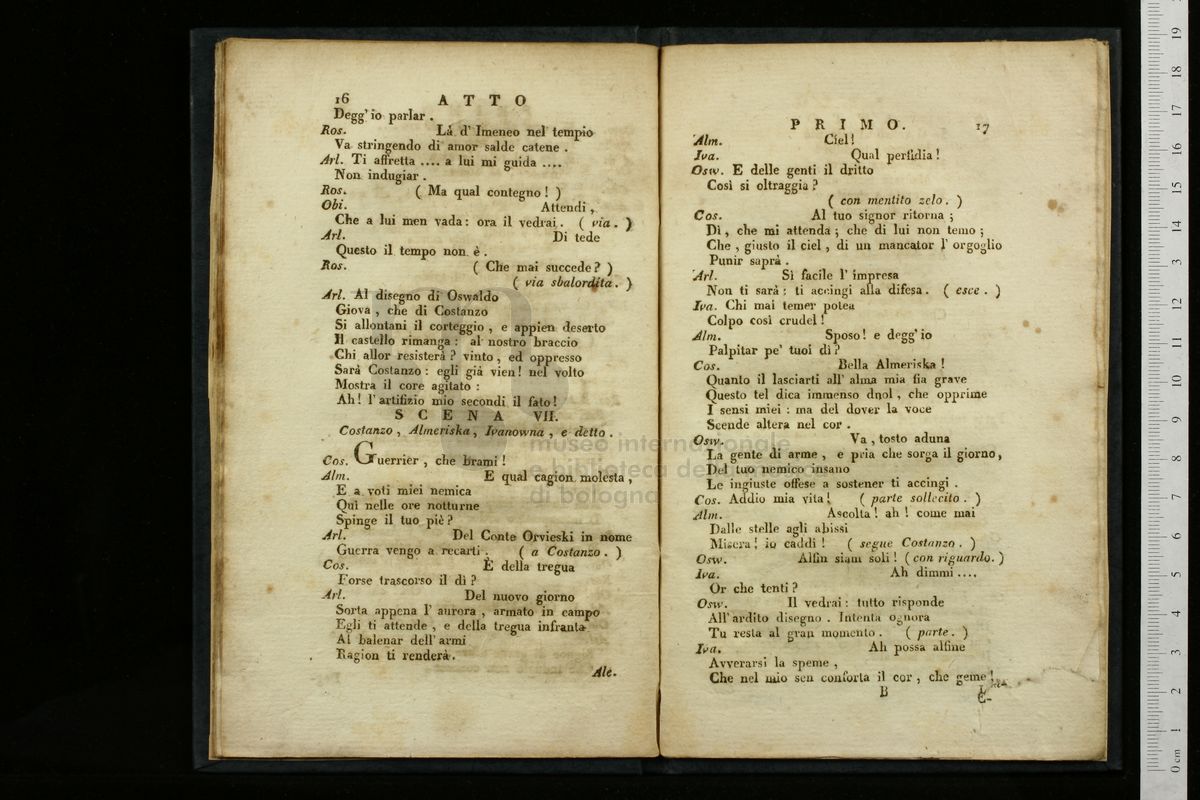 16 ATTO
Degg' io parlar .
Ros. Là d' Imeneo nel tempio
Va stringendo di amor salde catene .
Arl. Ti affretta .... a lui mi guida ....
Non indugiar .
Ros. ( Ma qual contegno ! )
Obi. Attendi ,
Che a lui men vada : ora il vedrai . ( via . )
Arl. Di tede
Questo il tempo non è .
Ros. ( Che mai succede ? )
( via sbalordita . )
Arl. Al disegno di Oswaldo
Giova , che di Costanzo
Si allontani il corteggio , e appien deserto
Il castello rimanga : al nostro braccio
Chi allor resisterà ? vinto , ed oppresso
Sarà Costanzo : egli già vien ! nel volto
Mostra il core agitato :
Ah ! l' artifizio mio secondi il fato !
SCENA VII.
Costanzo , Almeriska , Ivanowna , e detto .
Cos. Guerrier , che brami !
Alm. E qual cagion molesta ,
E a voti miei nemica
Quì nelle ore notturne
Spinge il tuo piè ?
Arl. Del Conte Orvieski in nome
Guerra vengo a recarti . ( a Costanzo . )
Cos. È della tregua
Forse trascorso il dì ?
Arl. Del nuovo giorno
Sorta appena l' aurora , armato in campo
Egli ti attende , e della tregua infranta
Al balenar dell' armi
Ragion ti renderà .
Ale.
PRIMO. 17
Alm. Ciel !
Iva. Qual perfidia !
Osw. E delle genti il dritto
Così si oltraggia ?
( con mentito zelo . )
Cos. Al tuo signor ritorna ;
Di , che mi attenda ; che di lui non temo ;
Che , giusto il ciel , di un mancator l' orgoglio
Punir saprà .
Arl. Sì facile l' impresa
Non ti sarà : ti accingi alla difesa . ( esce . )
Iva. Chi mai temer potea
Colpo così crudel !
Alm. Sposo ! e degg' io
Palpitar pe' tuoi dì ?
Cos. Bella Almeriska !
Quanto il lasciarti all' alma mia fia grave
Questo tel dica immenso duol , che opprime
I sensi miei : ma del dover la voce
Scende altera nel cor .
Osw. Va , tosto aduna
La gente di arme , e pria che sorga il giorno ,
Del tuo nemico insano
Le ingiuste offese a sostener ti accingi .
Cos. Addio mia vita ! ( parte sollecito . )
Alm. Ascolta ! ah ! come mai
Dalle stelle agli abissi
Misera ! io caddi ! ( segue Costanzo . )
Osw. Alfin siam soli ! ( con riguardo. )
Iva. Ah dimmi ....
Or che tenti ?
Osw. Il vedrai : tutto risponde
All' ardito disegno . Intenta ognora
Tu resta al gran momento . ( parte. )
Iva. Ah possa alfine
Avverarsi la speme ,
Che nel mio sen conforta il cor , che geme !
B
museo internazionale
e biblioteca de
di bologna
0 cm 1 2 3 4 5 6 7 8 9 10 11 12 13 14 15 16 17 18 19